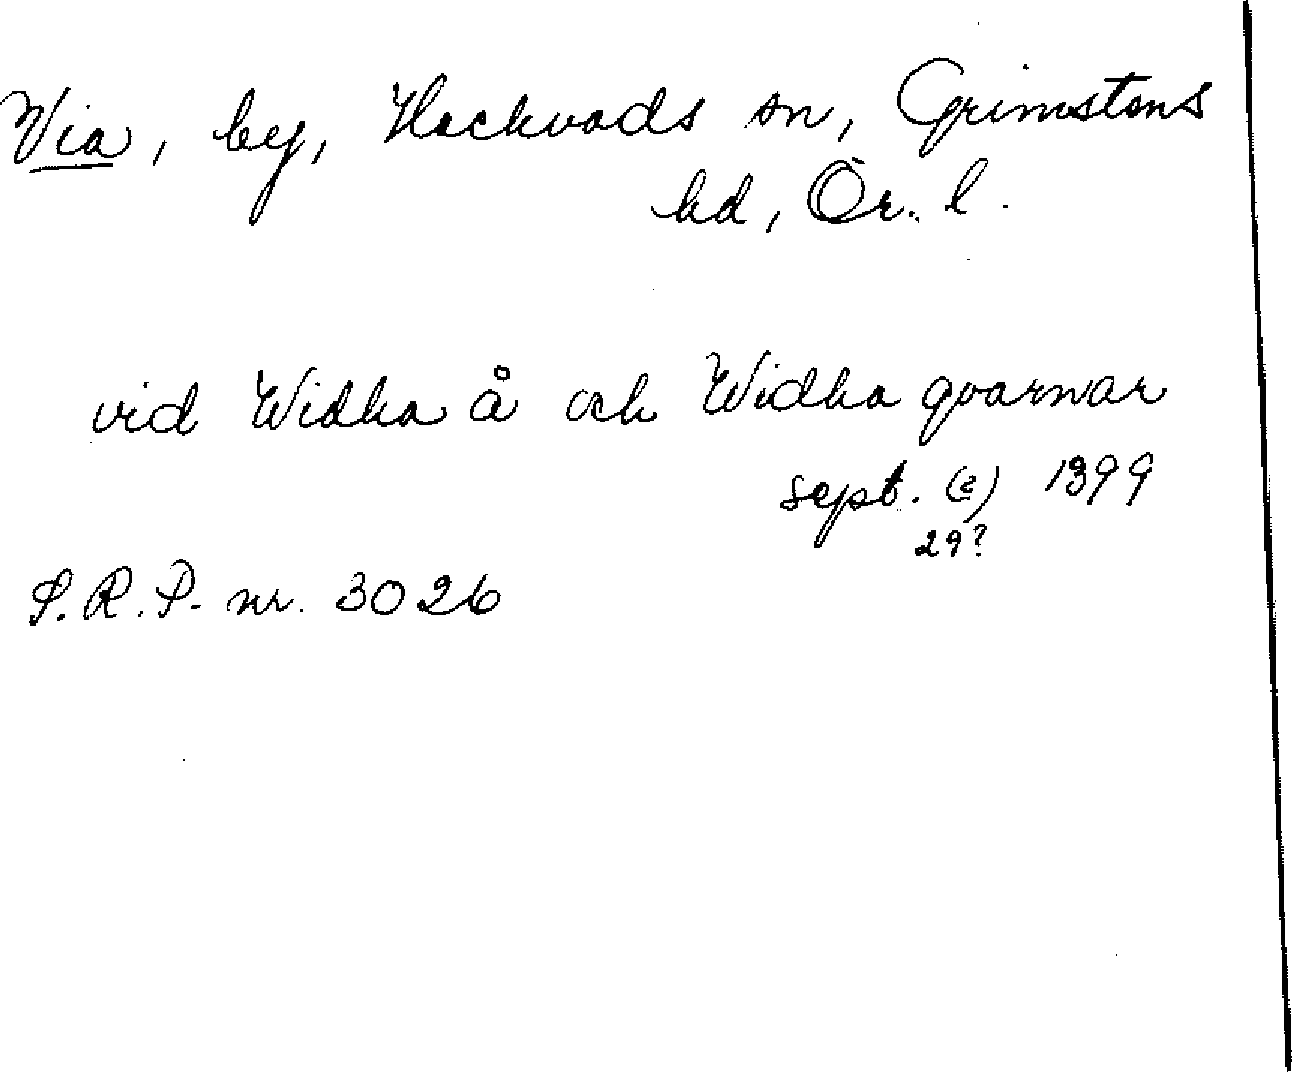 Via, by, Hackvads sn, Grimstens
hd, Ör. l.
vid Widha å och Widha qvarnar
sept. (c) 1399
29?
S.R.P. nr. 3026